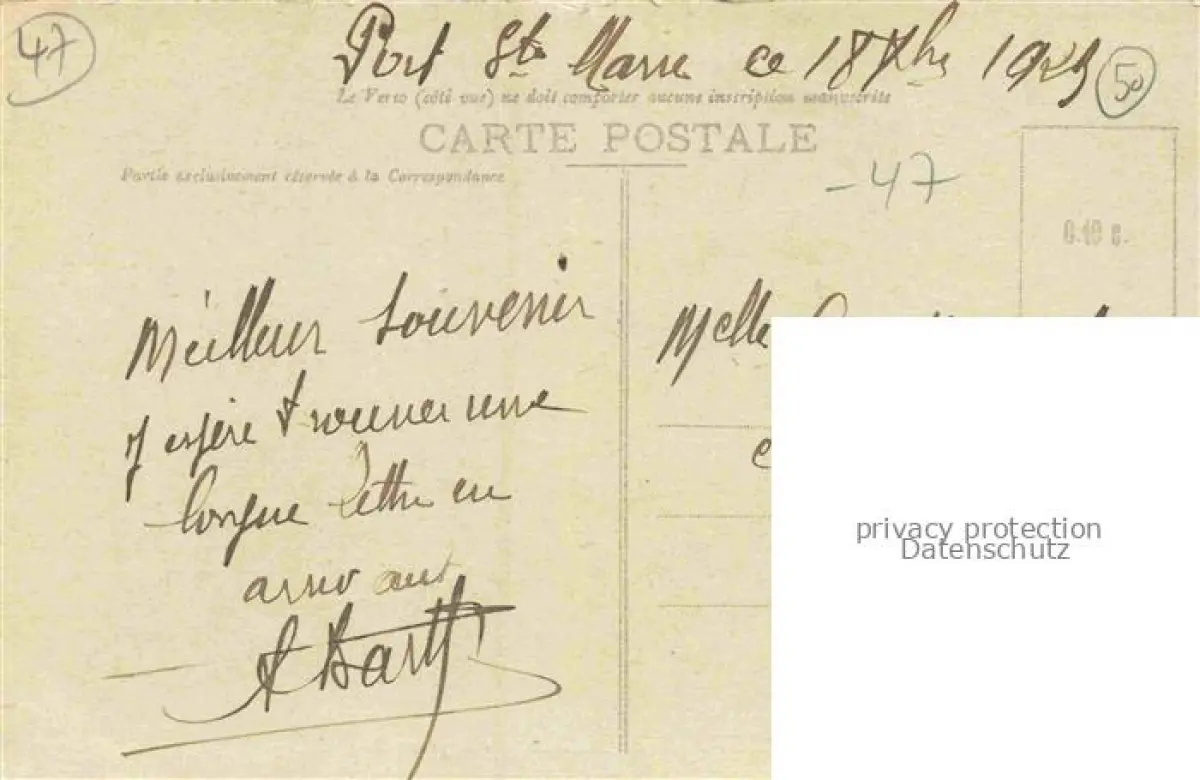 47
Port Ste Marie ce 18 Xbre 1923
50
Le Verso (côté vue) ne doit comporter aucune inscription manuscrite
CARTE POSTALE
Partie exclusivement réservée à la Correspondance
-47
0.10 c.
Meilleur souvenir
j'espère trouver une
longue lettre en
arrivant
Melle
privacy protection
Datenschutz